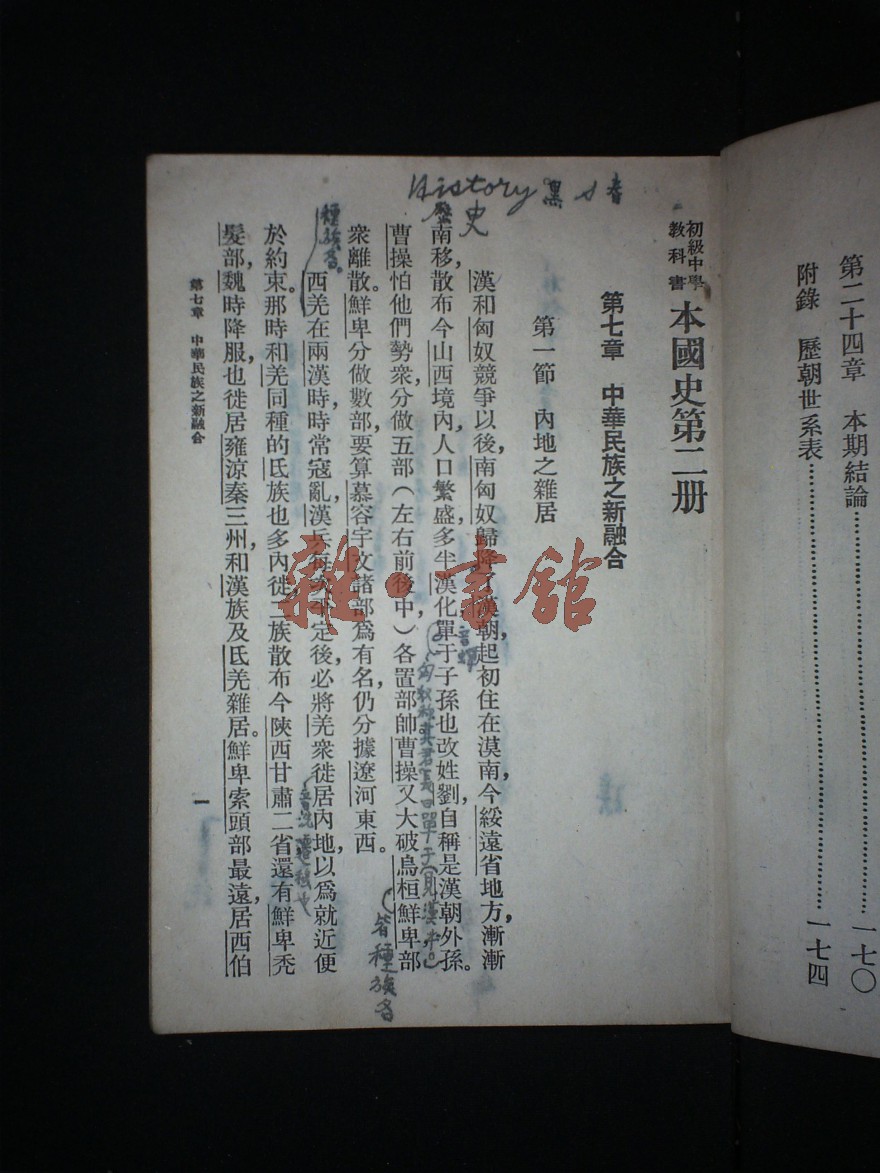 第二十四章　本期結論…………一七〇
附錄　歷朝世系表…………一七四
初級中學
教科書
本國史第二册
第七章　中華民族之新融合
第一節　內地之雜居
漢和匈奴競爭以後，南匈奴歸降了漢朝，起初住在漠南，今綏遠省地方，漸漸
南移，散布今山西境內，人口繁盛多半漢化單于子孫也改姓劉，自稱是漢朝外孫。
曹操怕他們勢衆，分做五部（左右前後中）各置部帥曹操又大破烏桓鮮卑部
衆離散。鮮卑分做數部，要算慕容宇文諸部爲有名，仍分據遼河東西。
西羌在兩漢時時常寇亂，漢兵每次平定後，必將羌衆徙居內地，以爲就近便
於約束。那時和羌同種的氐族也多內徙，二族散布今陝西甘肅二省，還有鮮卑禿
髮部，魏時降服，也徙居雍涼秦三州，和漢族及氐羌雜居。鮮卑索頭部最遠，居西伯
第七章　中華民族之新融合
一
History
歷史
種族名。
音蟬
匈奴稱其君長曰單于（見漢書）
皆種族名
雜·書館